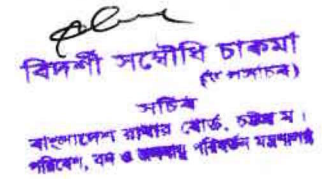 বিদর্শী সম্বোধি চাকমা
(উপসচিব)
সচিব
বাংলাদেশ রাবার বোর্ড, চট্টগ্রাম।
পরিবেশ, বন ও জলবায়ু পরিবর্তন মন্ত্রণালয়